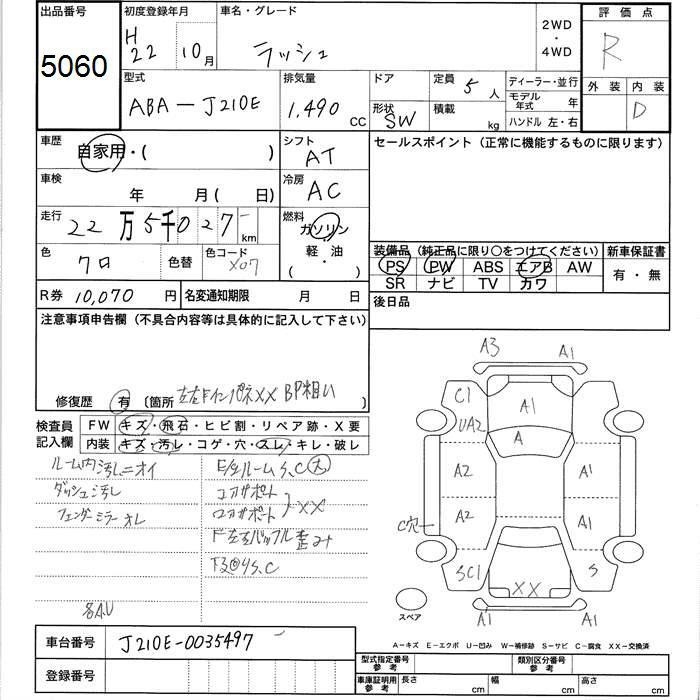 出品番号
5060
初度登録年月
H 22 10月
車名・グレード
ラッシュ
2WD
・
4WD
評価点
R
外装 内装
D
型式
ABA-J210E
排気量
1,490 CC
ドア
形状
SW
定員 5 人
積載 kg
ディーラー・並行
モデル年式 年
ハンドル 左・右
車歴
自家用・( )
シフト
AT
セールスポイント (正常に機能するものに限ります)
車検
年 月( 日)
冷房
AC
走行
22万5千027 km
燃料
ガソリン
・
軽油
( )
色
クロ
色替
色コード
X07
装備品 (純正品に限り○をつけてください)
PS PW ABS エアB AW
SR ナビ TV カワ
新車保証書
有・無
R券 10,070 円
名変通知期限 月 日
後日品
注意事項申告欄 (不具合内容等は具体的に記入して下さい)
修復歴 有 〔箇所 左右Fインパネ××
検査員記入欄
FW キズ・飛石・ヒビ割・リペア跡・X要
内装 キズ・汚レ・コゲ・穴・スレ・キレ・破レ
ルーム内汚レニオイ
ダッシュ汚レ
フェンダーミラーオレ
ルームS.C大
コアサポート
ロアサポート
××
F左右バッフル歪み
A3 A1
C1 A1
UA2
A
A2 A1
A2 A1
C穴
SC1 S
XX
A1 A1
スペア
A-キズ E-エクボ U-凹み W-補修跡 S-サビ C-腐食 XX-交換済
車台番号 J210E-0035497
登録番号
型式指定番号 参考
類別区分番号 参考
車庫証明用 参考
長さ cm 幅 cm 高さ cm